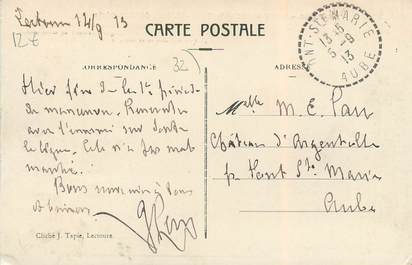 Lectoure 14/9 13
12€
CARTE POSTALE
CORRESPONDANCE
32
ADRESSE
NT-STE MARIE
13
5-9
13
AUBE
Hier fin de la 1e période
de manœuvre. Rencontre
avec l'ennemi sur toute
la ligne. Cela n'a pas mal
marché.
Bons souvenirs à tous
Melle M. E.
Château d'Argentolle
pr Pont Ste Marie
Aube
Cliché J. Tapie, Lectoure